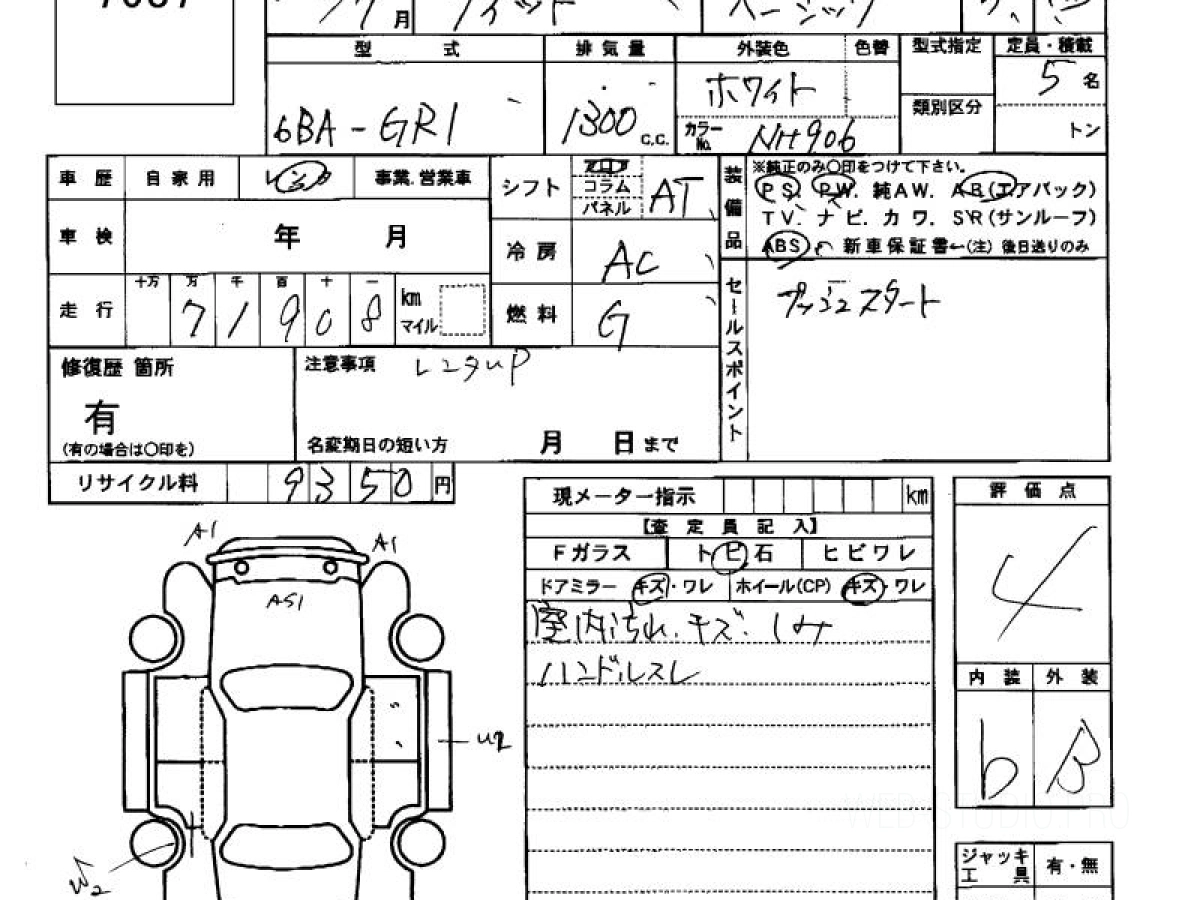 月 フィット ベーシック
型 式 排気量 外装色 色替 型式指定 定員・積載
6BA-GR1 1300 C.C. ホワイト 5 名
カラーNo. NH906 類別区分 トン
車歴 自家用 レンタ 事業.営業車
シフト コラム パネル AT
装備品 ※純正のみ〇印をつけて下さい。
PS. PW. 純AW. AB(エアバック)
TV. ナビ. カワ. SR(サンルーフ)
ABS 新車保証書←(注) 後日送りのみ
車検 年 月
冷房 AC
走行 十万 万 千 百 十 一
7 1 9 0 8 km マイル
燃料 G
セールスポイント プッシュスタート
修復歴 箇所
有
(有の場合は〇印を)
注意事項 レンタUP
名変期日の短い方 月 日まで
リサイクル料 9350 円
現メーター指示 km
【査定員記入】
Fガラス トビ石 ヒビワレ
ドアミラー キズ・ワレ ホイール(CP) キズ・ワレ
室内汚れ、キズ、シミ
ハンドルスレ
評価点
4
内装 外装
b B
A1 A1
AS1
U2
W2
WEB STUDIO.PRO
ジャッキ 工具 有・無